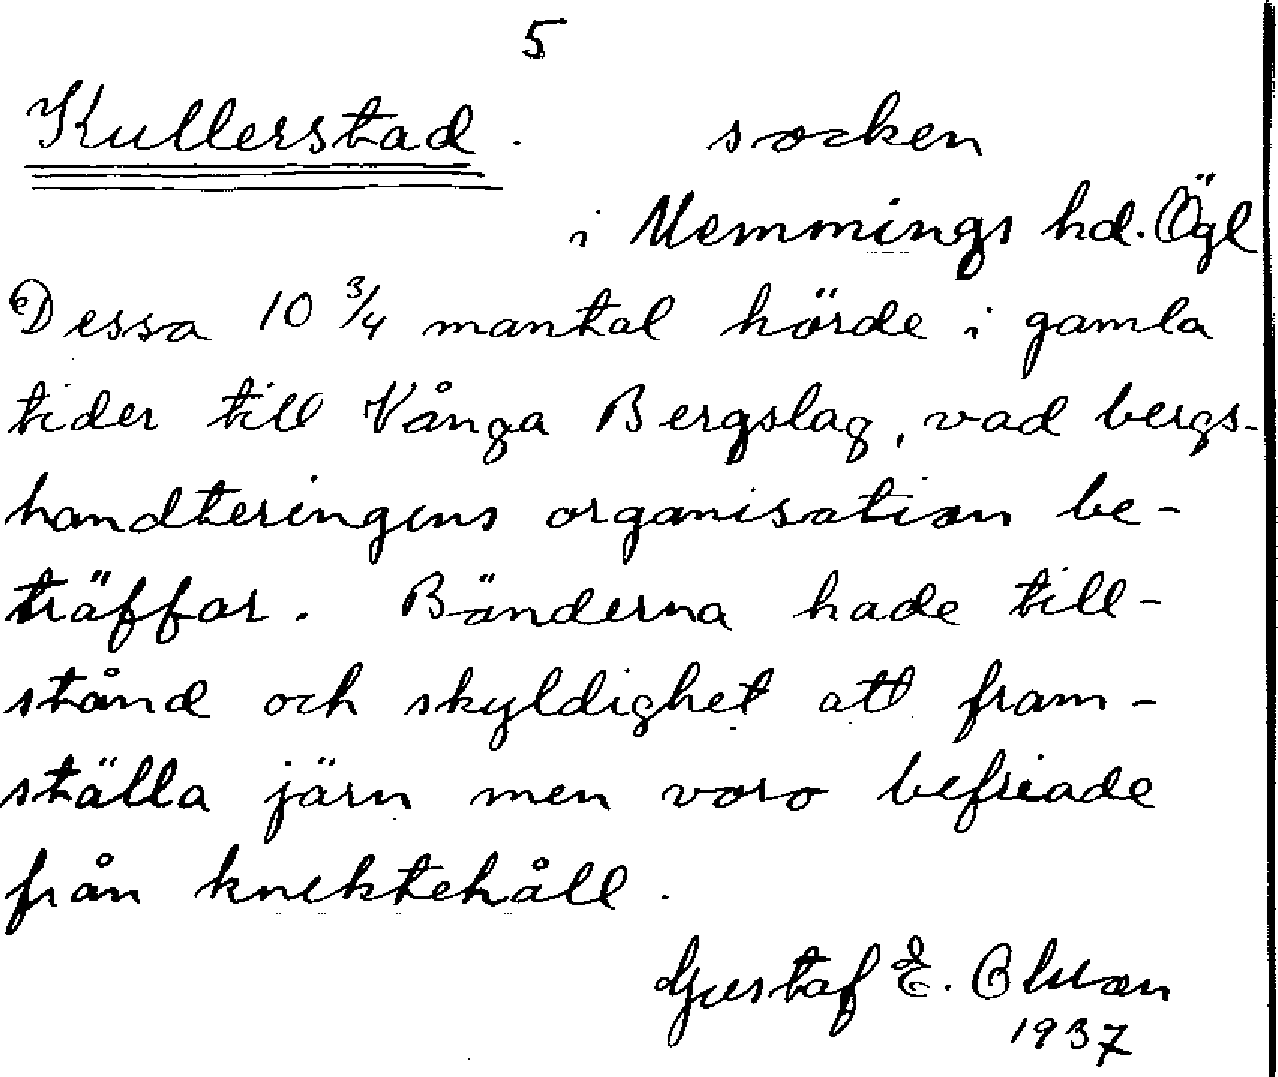 5
Kullerstad. socken
i Memmings hd. Ögl
Dessa 10 3/4 mantal hörde i gamla
tider till Vånga Bergslag, vad bergs-
handteringens organisation be-
träffar. Bänderna hade till-
stånd och skyldighet att fram-
ställa järn men voro befriade
från knektehåll.
Gustaf E. Olsson
1937